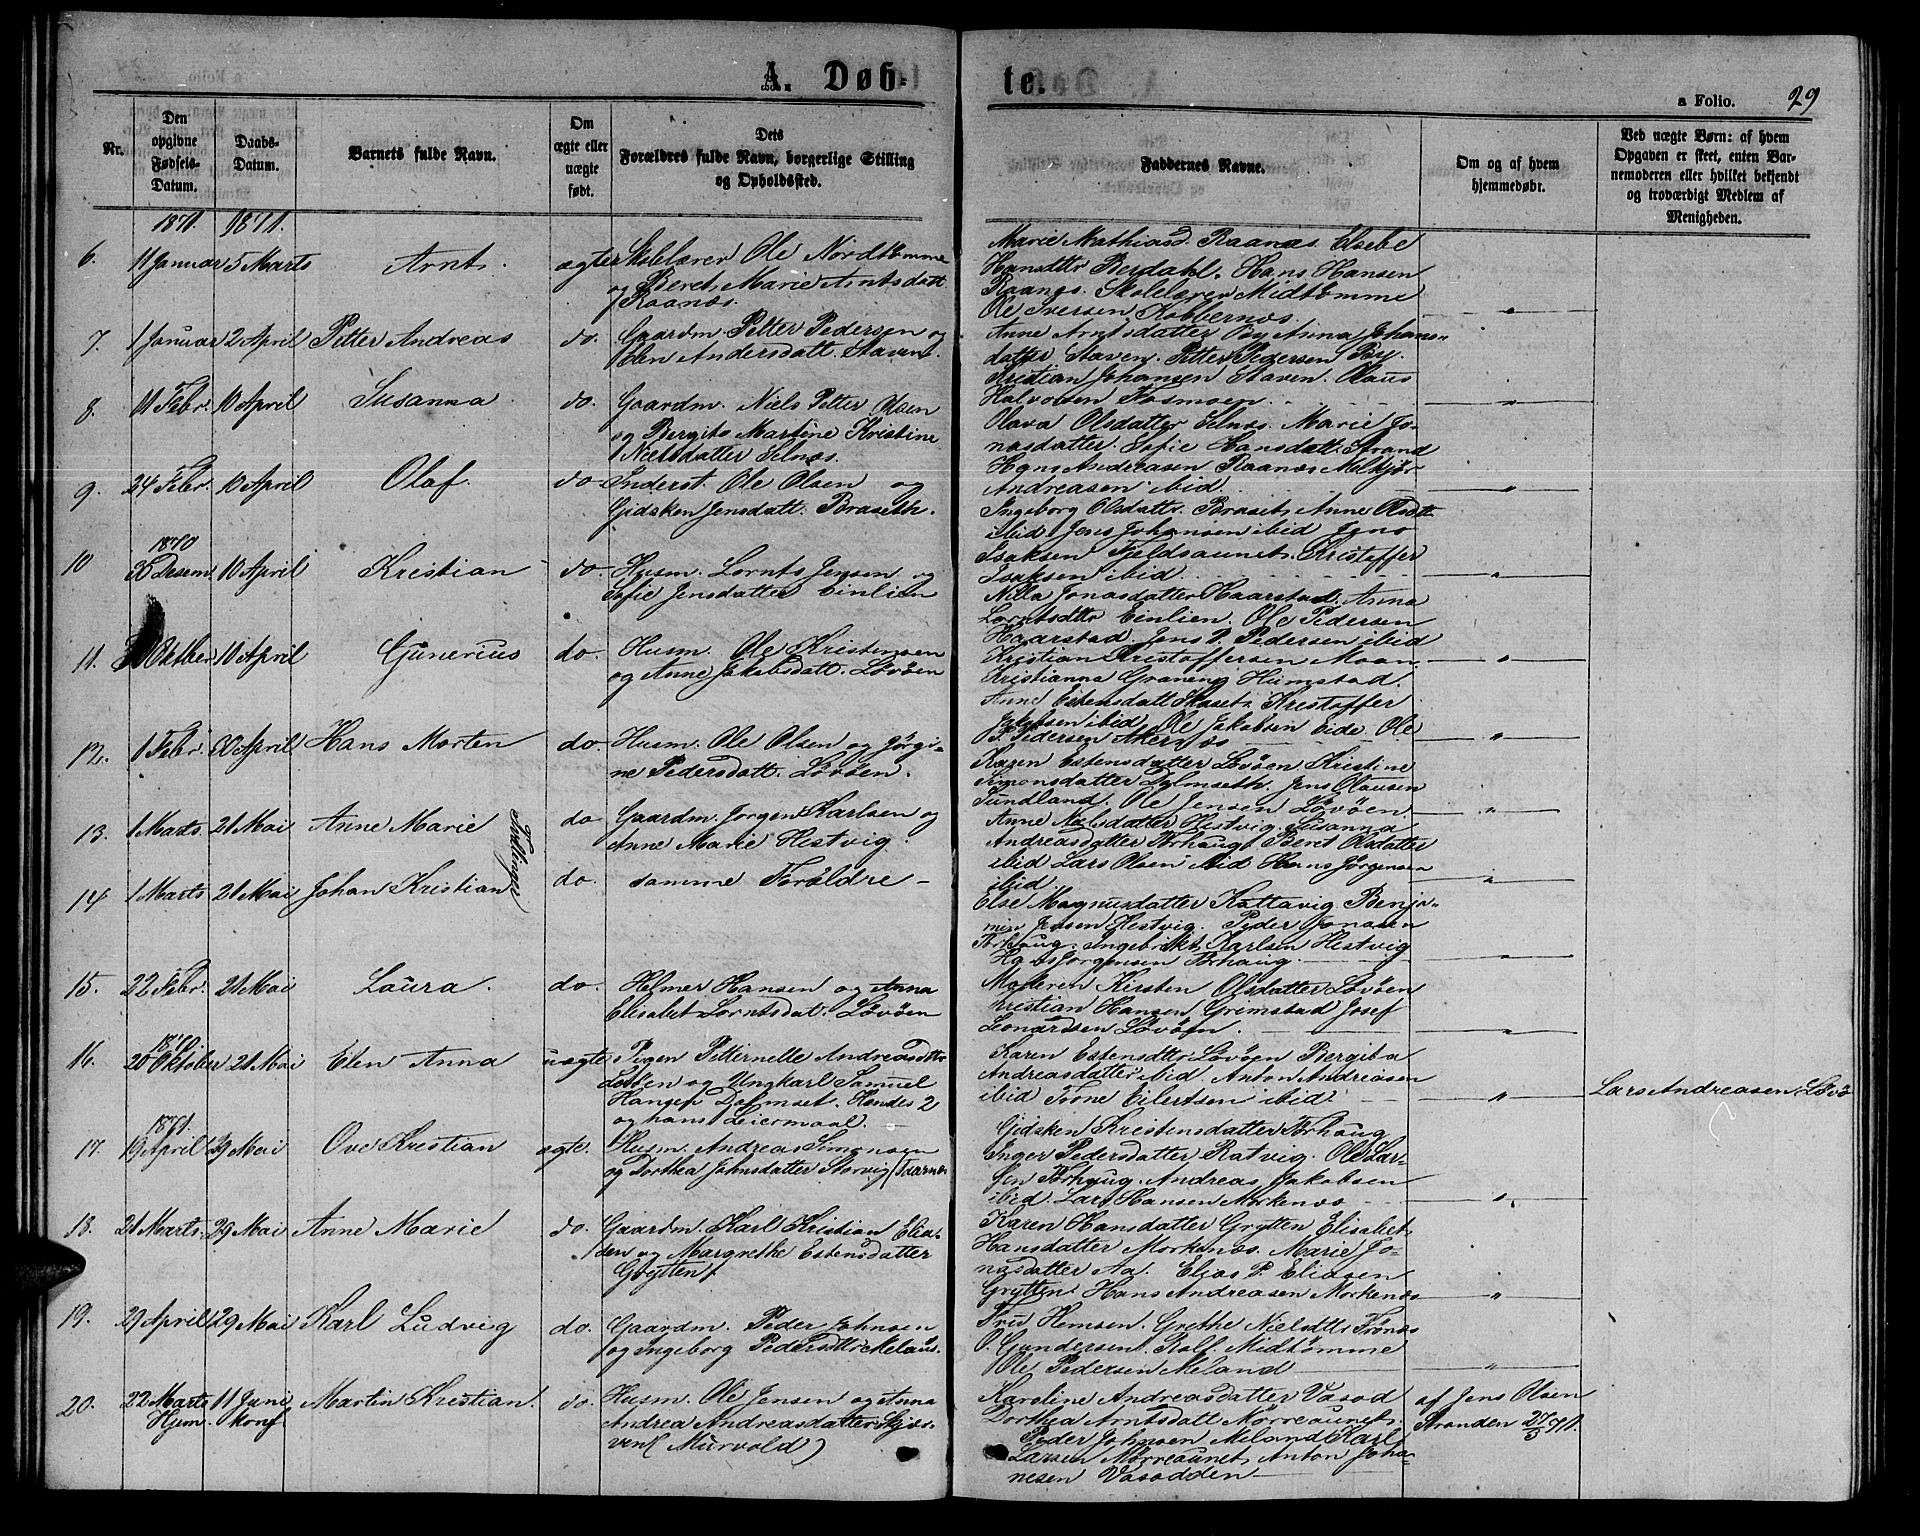 A. Døb-
te.
a Folio. 29
Nr.
Den opgivne Fødsels-Datum.
Daabs-Datum.
Barnets fulde Navn.
Om ægte eller uægte født.
Dets Forældres fulde Navn, borgerlige Stilling og Opholdssted.
Faddernes Navne.
Om og af hvem hjemmedøbt.
Ved uægte Børn: af hvem Opgaven er skeet, enten Barnemoderen eller hvilket bekjendt og troværdigt Medlem af Menigheden.
1871. 1871.
6. 11 Januar 5 Marts Arnt. ægte Skolelærer Ole Nordtømme
og Beret Marie Arntsdatt
Raanæs.
Marie Mathiasd. Raanæs. Elsebe
Hansdttr Berdahl. Hans Hansen
Raanæs. Skolelærer Midtømme
Ole Iversen Kobbernæs. "
7. 1 Januar 2 April Petter Andreas do. Gaardm. Petter Pedersen og
Elen Andersdatt. Staven.
Anne Arntsdatter By Anna Johans-
datter Staven. Petter Pedersen By.
Kristian Johansen Staven. Olaus
Halvorsen Fosmoen. "
8. 11 Febr. 10 April Susanna do. Gaardm. Niels Petter Olsen
og Bergite Martine Kristine
Nielsdatter Selnæs.
Olava Olsdatter Selnæs. Marie Jo-
nasdatter. Sofie Hansdatt. Strand
Hans Andreasen Raanæs Melkjør
Andreasen ibid. "
9. 24 Febr. 10 April Olaf. do Inderst. Ole Olsen og
Gidsken Jensdatt. Braseth.
Ingeborg Olsdattr. Braset. Anne Olsdtt
ibid Jens Johansen ibid Jens
Isaksen Fjeldsaunet. Kristoffer
Isaksen ibid. "
1870
10 Desem 10 April Kristian do. Husm. Lornts Jensen og
Sofie Jensdatter Einlien
Nilla Jonasdatter Haarstad. Anna
Lorntsdttr Einlien. Ole Pedersen
Haarstad. Jens P. Pedersen ibid
11. Oktber 10 April Gunerius do. Husm. Ole Kristensen
og Anne Jakobsdatt. Løvøen
Kristian Kristoffersen Moan "
Kristianna Graneng Humstad.
Anne Estensdatt Skaset. Kristoffer
Jakobsen ibid Ole Jakobsen Eide Ole
P. Pedersen Akernæs "
12. 1 Febr. April Hans Morten do. Husm. Ole Olsen og Jørgi-
ne Pedersdatt. Løvøen.
Karen Estensdatter Løvøen Kristine
Simonsdatter Dylmseth. Jens Olausen
Sundland. Ole Jensen Løvøen. "
13. 1 Marts. 21 Mai Anne Marie Tvillinger do Gaardm. Jørgen Karlsen og
Anne Marie Hestvig.
Anne Nielsdatter Hestvig. Susanna
Andreasdatter Torhaug. Beret Olsdatter
ibid Lars Olsen ibid Hans Jørgensen
ibid. "
14 1 Marts 21 Mai Johan Kristian do. samme Forældre -
Else Magnusdatter Kottavig. Benja-
min Jensen Hestvig. Peder Jonasen
Torhaug. Ingebrikt Karlsen Hestvig
Hans Jørgensen Torhaug. "
15. 22 Febr. 21 Mai Laura. do. Helmer Hansen og Anna
Elisabet Lorntsdat. Løvøen
Moderen Kirsten Olsdatter Løvøen
Kristian Hansen Gremstad Josef
Leonardsen Løvøen. "
1870
16. 20 Oktober 21 Mai Elen Anna uægte Pigen Petternelle Andreasdttr
Løvøen og Ungkarl Samuel
Hansen Dalmset. Hendes 2
og hans Leiermaal.
Karen Estensdttr Løvøen Bergita
Andreasdatter ibid. Anton Andreasen
ibid Trone Eilertsen ibid. "
Lars Andreasen Løvø
1871.
17. 19 April 29 Mai Ove Kristian ægte. Husm. Andreas Simonsen
og Dorthea Johnsdatter Storvig (Tarnæs
Gidsken Kristensdatter Torhaug
Inger Pedersdatter Ratvig. Ole Lar-
sen Torhaug. Andreas Jakobsen
ibid. Lars Hansen Morkenæs "
18. 21 Marts. 29 Mai Anne Marie do. Gaardm. Karl Kristian Elia-
sen og Margrethe Estensdatter
Grytten.
Karen Hansdatter Grytten Elisabet
Hansdatter Morkenæs. Marie Jo-
nasdatter Aa. Elias P. Eliasen
Grytten Hans Andreasen Morkenæs "
19. 29 April 29 Mai Karl Ludvig do. Gaardm. Peder Johnsen
og Ingeborg Pedersdttr Meland.
Fru Hemsen. Grethe Nielsdttr Frønæs
O. Gundersen. Rolf Midtømme
Ole Pedersen Meland "
20. 22 Marts 11 Juni Martin Kristian. do. Husm. Ole Jensen og Anna
Hjem. konf. Andrea Andreasdatter Skjær-
ven( Murvold)
Karoline Andreasdatter Vasød
Dorthea Arntsdatt Mørreaunet.
Peder Johnsen Meland Karl
Larsen Mørreaunet. Anton Joha-
nesen Vasødden
af Jens Olsen
Stranden 27/3 71.